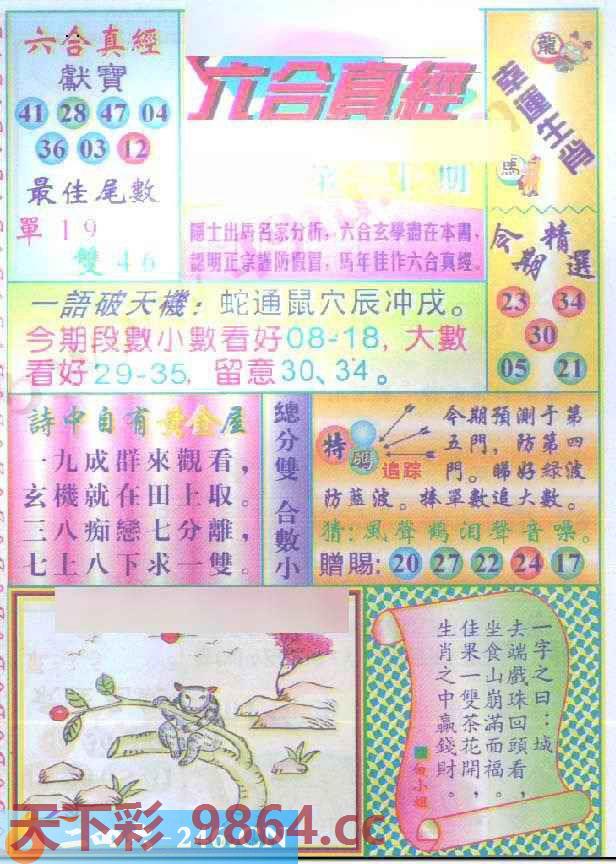 六合真經
獻寶
41 28 47 04
36 03 12
最佳尾數
單 1 9
雙 4 6
六合真經
期
隱士出馬名家分析，六合玄學盡在本書，
認明正宗謹防假冒，馬年佳作六合真經。
龍
幸運生肖
馬
今期精選
23 34
30
05 21
一語破天機：蛇通鼠穴辰冲戌。
今期段數小數看好08-18, 大數
看好29-35, 留意30、34。
詩中自有黃金屋
一九成群來觀看，
玄機就在田上取。
三八痴戀七分離，
七上八下求一雙。
總分雙 合數小
特碼
追踪
今期預測于第
五門，防第四
門。睇好綠波
防藍波。捧單數追大數。
猜：風聲鶴泪聲音噪。
贈賜: 20 27 22 24 17
一字之曰：城
去端戲珠回頭看，
坐食山崩滿而福。
佳果一雙茶花開，
生肖之中贏錢財。
小姐
天下彩 9864.cc
246.CN